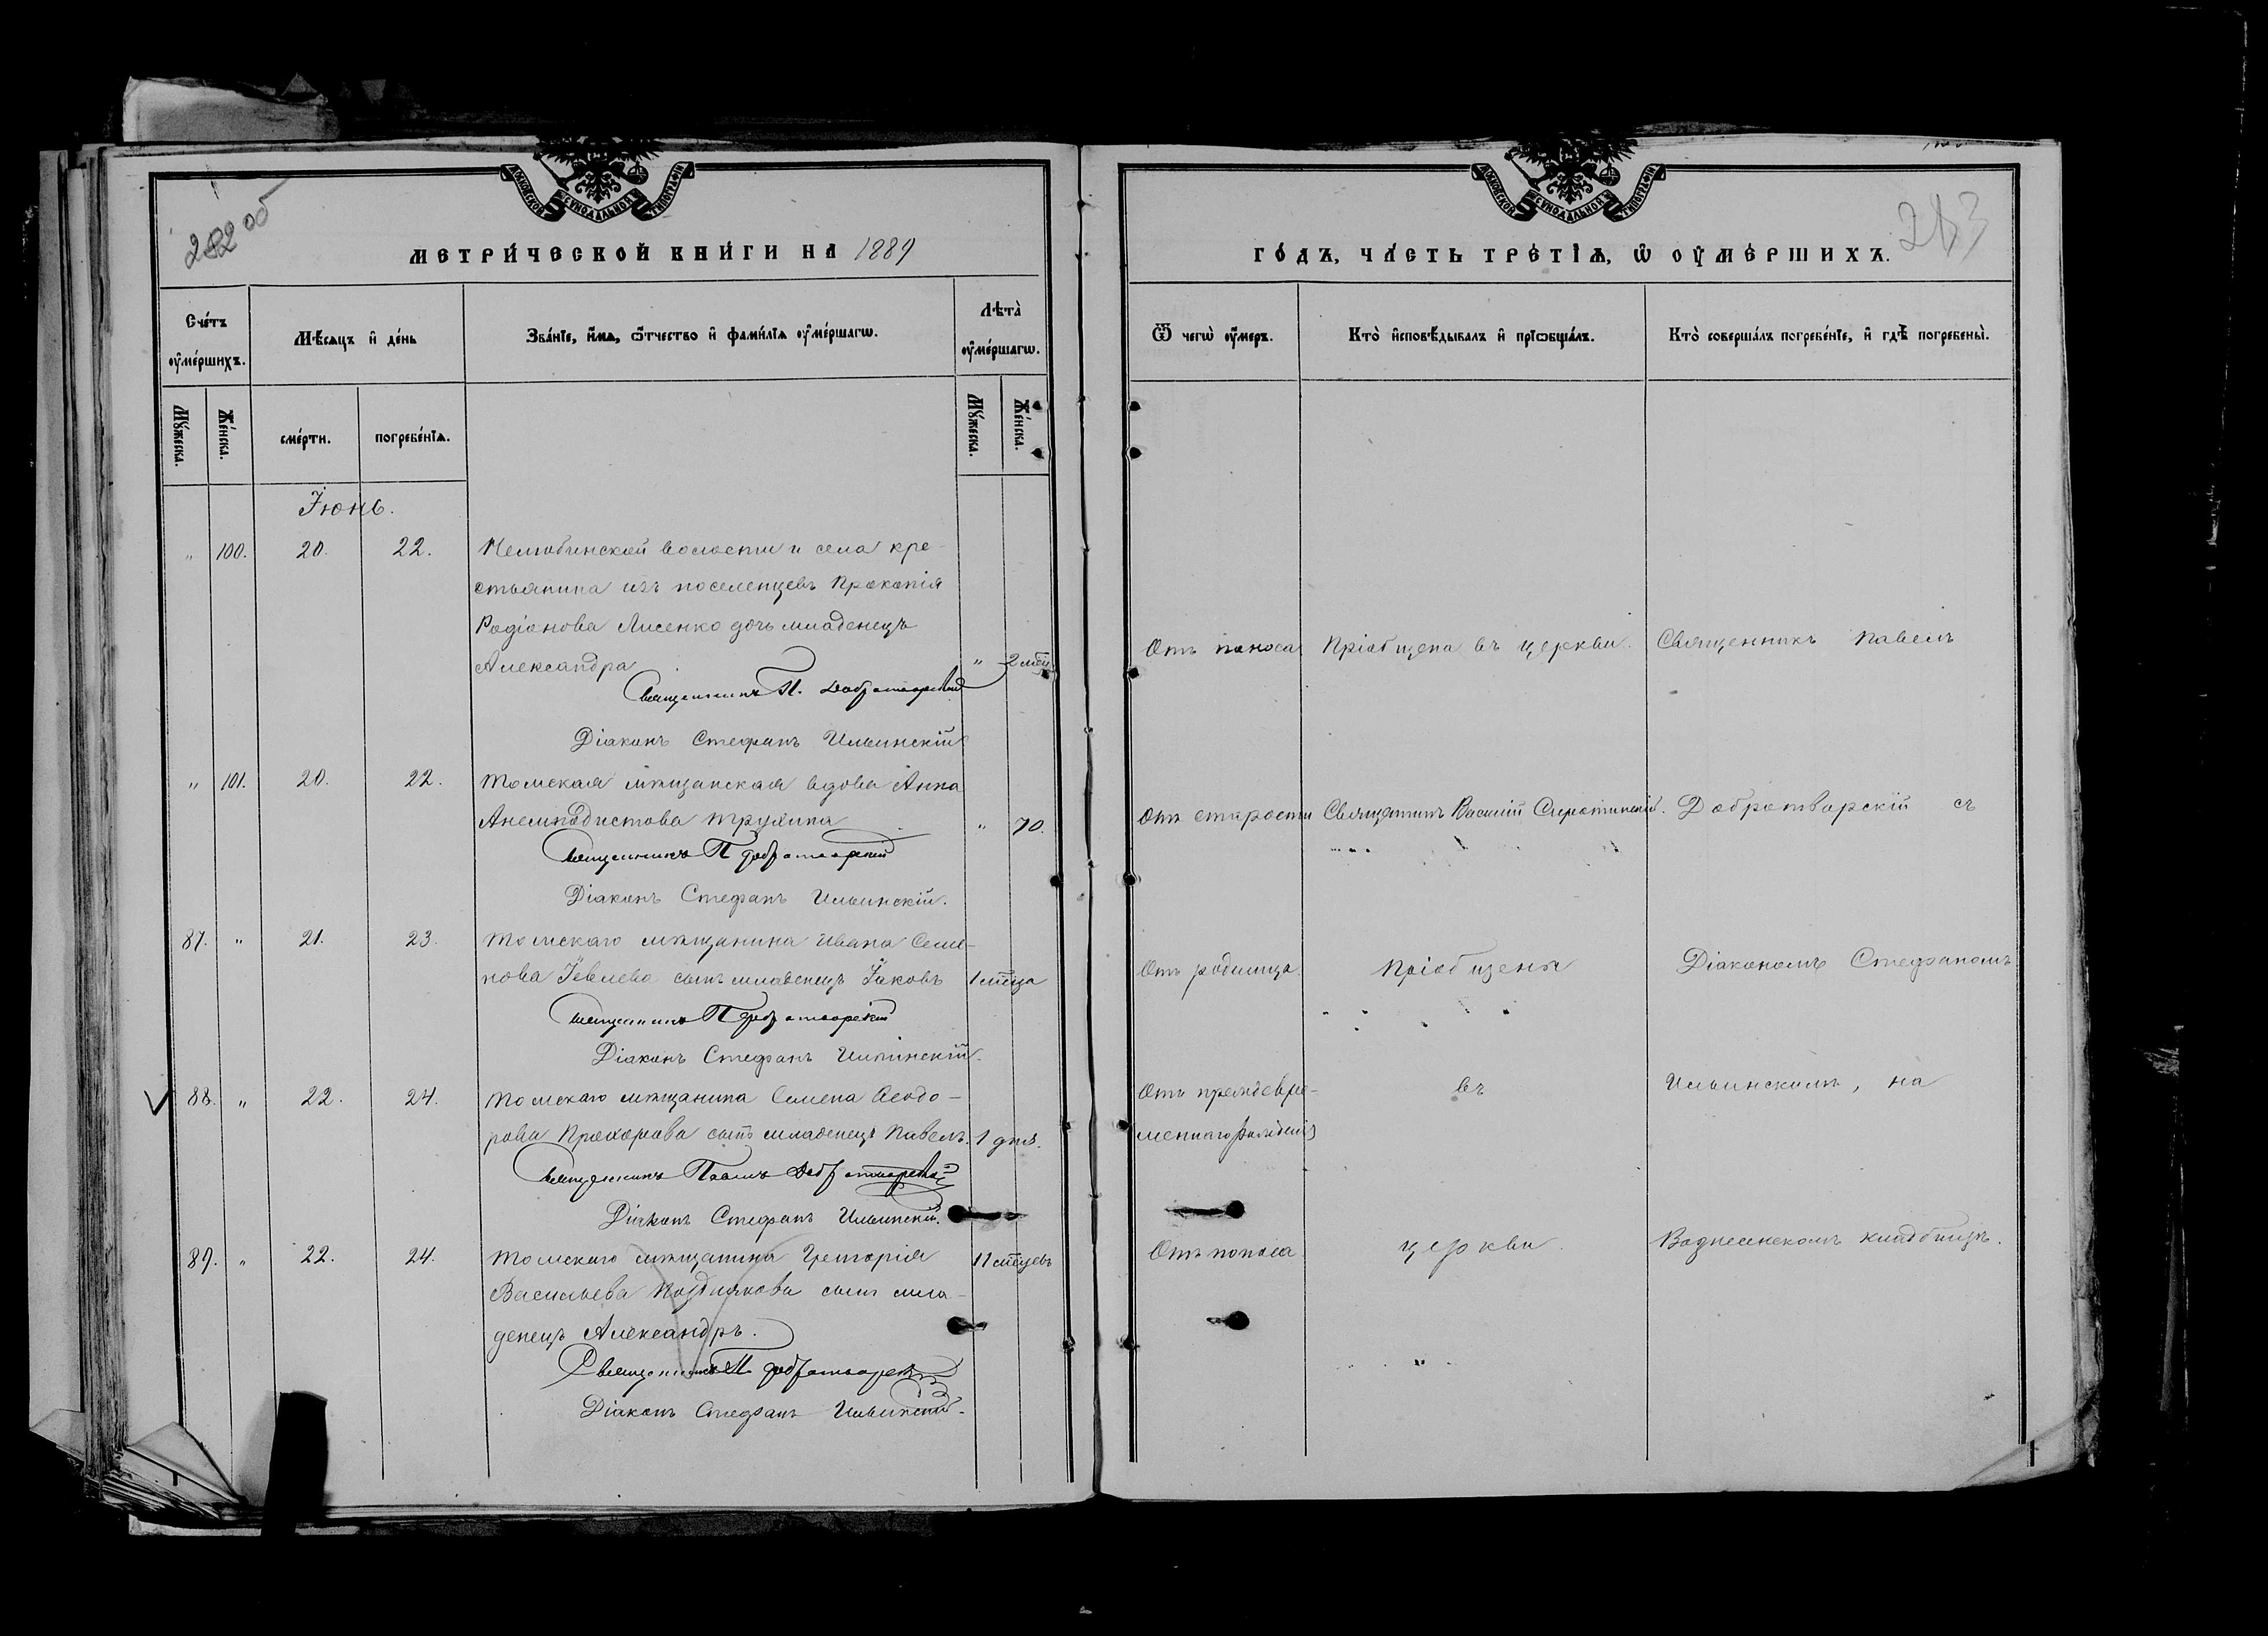 282 об
МОСКОВСКОЙ СѴНОДАЛЬНОЙ ТИПОГРАФІИ
МЕТРИ́ЧЕСКОЙ КНИ́ГИ НА 1889
Сче́тъ ᲂу҆ме́ршихъ.
Мѣ́сяцъ и҆ де́нь
Зва́нїе, и҆́мѧ, ѻ҆́тчество и҆ фами́лїѧ ᲂу҆ме́ршагѡ.
Лѣта̀ ᲂу҆ме́ршагѡ.
Мꙋ́жеска.
Же́нска.
сме́рти.
погребе́нїѧ.
Мꙋ́жеска.
Же́нска.
Іюнь.
" 100. 20. 22. Нелюбинской волости и села кре-
стьянина изъ поселенцевъ Прокопія
Родіонова Лисенко дочь младенецъ
Александра " 2 мѣс.
Священникъ П. Добротворскій
Діаконъ Стефанъ Ильинскій
" 101. 20. 22. Томская мѣщанская вдова Анна
Анемподистова Трухина " 70.
Священникъ П Добротворскій
Діаконъ Стефанъ Ильинскій.
87. " 21. 23. Томскаго мѣщанина Ивана Семе-
нова Іевлева сынъ младенецъ Іаковъ 1 мѣсяца
Священникъ П Добротворскій
Діаконъ Стефанъ Ильинскій.
88. " 22. 24. Томскаго мѣщанина Семена Ѳеодо-
рова Прохорова сынъ младенецъ Павелъ. 1 дня.
Священникъ Павелъ Добротворскій
Діаконъ Стефанъ Ильинскій.
89. " 22. 24. Томскаго мѣщанина Григорія 11 мѣсяцевъ
Васильева Позднякова сынъ мла-
денецъ Александръ.
Священникъ П Добротворскій
Діаконъ Стефанъ Ильинскій.
МОСКОВСКОЙ СѴНОДАЛЬНОЙ ТИПОГРАФІИ
ГО́ДЪ, ЧА́СТЬ ТРЕ́ТЇѦ, Ѡ҆ ОУ҆МЕ́РШИХЪ.
Ѿ чегѡ̀ ᲂу҆́меръ.
Кто̀ и҆сповѣ́дывалъ и҆ прїѡбща́лъ.
Кто̀ соверша́лъ погребе́нїе, и҆ гдѣ̀ погребены̀.
Отъ поноса Пріобщена въ церкви. Священникъ Павелъ
Отъ старости Священникъ Василій Сиротинскій. Добротворскій съ
Отъ родимца Пріобщены Діакономъ Стефаномъ
Отъ преждевре- въ Ильинскимъ, на
меннаго рожденія
Отъ поноса церкви. Вознесенскомъ кладбищѣ.